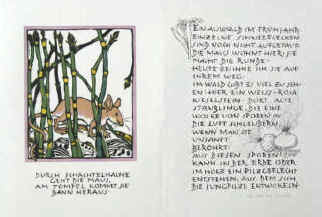 DURCH SCHACHTELHALME
GEHT DIE MAUS,
AM TÜMPEL KOMMT SIE
DANN HERAUS
EIN AUWALD IM FRÜHJAHR
EINZELNE SCHNEEFLECKEN
SIND NOCH NICHT AUFGETAUT
DIE MAUS WOHNT HIER; SIE
MACHT DIE RUNDE.
HEUTE SIND IHR SIE AUF
IHREM WEG.
IM WALD GIBT ES VIEL ZU SEH
EN: HIER EIN WEISS-ROSA
KIESELSTEIN - DORT ALTE
STÄUBLINGE, DIE EINE
WOLKE VON SPOREN IN
DIE LUFT SCHLEUDERN
WENN MAN SIE
UNSANFT
BERÜHRT.
AUS DIESEN SPOREN
KANN IN DER ERDE ODER
IM HOLZ EIN PILZGEFLECHT
ENTSTEHEN, AUS DEM SICH
DIE JUNGPILZE ENTWICKELN